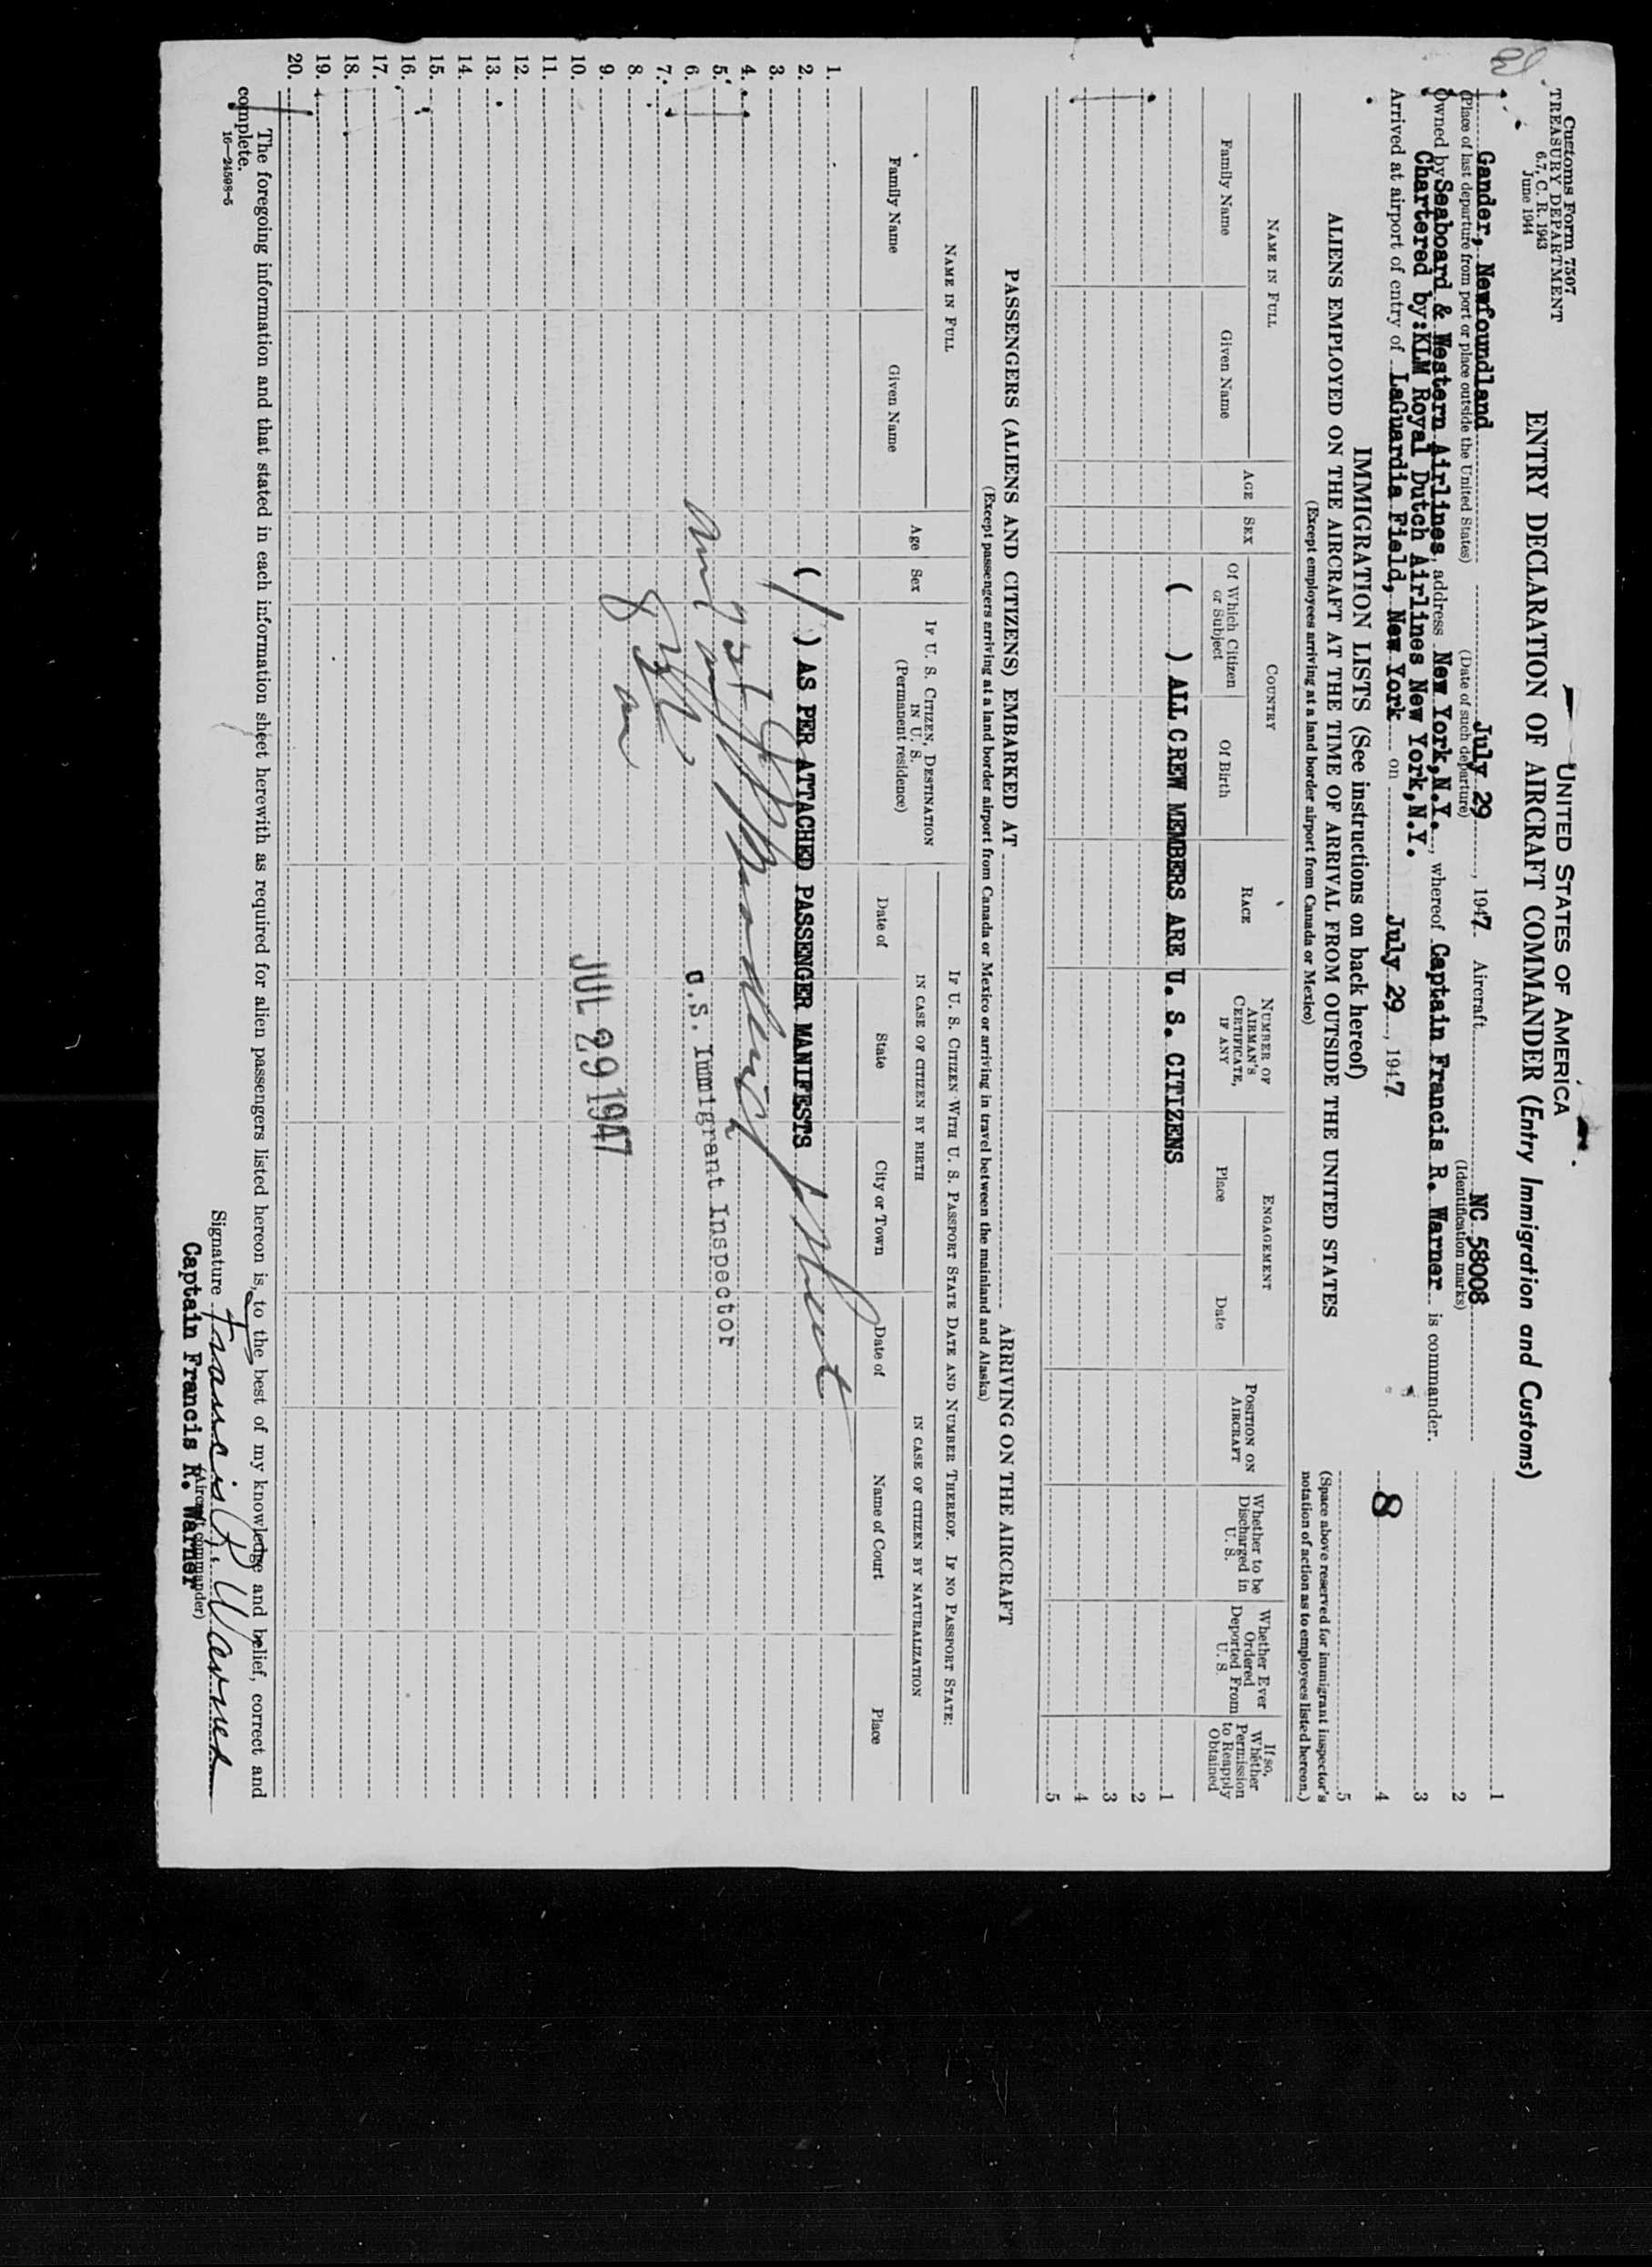 Customs Form 7507
TREASURY DEPARTMENT
6.7, C. R. 1943
June 1944
UNITED STATES OF AMERICA
ENTRY DECLARATION OF AIRCRAFT COMMANDER (Entry Immigration and Customs)
Gander, Newfoundland July 29, 1947 Aircraft NC 58008
(Place of last departure from port or place outside the United States) (Date of such departure) (Identification marks)
Owned by Seaboard & Western Airlines, address New York,N.Y., whereof Captain Francis R. Warner is commander.
Chartered by:KLM Royal Dutch Airlines New York,N.Y.
Arrived at airport of entry of LaGuardia Field, New York on July 29, 1947.
1
2
3
8 4
5
(Space above reserved for immigrant inspector's
notation of action as to employees listed hereon.)
IMMIGRATION LISTS (See instructions on back hereof)
ALIENS EMPLOYED ON THE AIRCRAFT AT THE TIME OF ARRIVAL FROM OUTSIDE THE UNITED STATES
(Except employees arriving at a land border airport from Canada or Mexico)
NAME IN FULL
Family Name
Given Name
AGE
SEX
COUNTRY
Of Which Citizen or Subject
Of Birth
RACE
NUMBER OF AIRMAN'S CERTIFICATE, IF ANY
ENGAGEMENT
Place
Date
POSITION ON AIRCRAFT
Whether to be Discharged in U. S.
Whether Ever Ordered Deported From U. S.
If so, Whether Permission to Reapply Obtained
( ) ALL CREW MEMBERS ARE U. S. CITIZENS 1
2
3
4
5
PASSENGERS (ALIENS AND CITIZENS) EMBARKED AT ARRIVING ON THE AIRCRAFT
(Except passengers arriving at a land border airport from Canada or Mexico or arriving in travel between the mainland and Alaska)
NAME IN FULL
Family Name
Given Name
Age
Sex
IF U. S. CITIZEN, DESTINATION IN U. S.
(Permanent residence)
IF U. S. CITIZEN WITH U. S. PASSPORT STATE DATE AND NUMBER THEREOF. IF NO PASSPORT STATE:
IN CASE OF CITIZEN BY BIRTH
IN CASE OF CITIZEN BY NATURALIZATION
Date of
State
City or Town
Date of
Name of Court
Place
1.
2. ( / ) AS PER ATTACHED PASSENGER MANIFESTS
3.
4.
5.
6. U.S. Immigrant Inspector
7.
8.
9.
10. JUL 29 1947
11.
12.
13.
14.
15.
16.
17.
18.
19.
20.
The foregoing information and that stated in each information sheet herewith as required for alien passengers listed hereon is, to the best of my knowledge and belief, correct and
complete.
16—24598-5
Signature Francis R. Warner
(Aircraft commander)
Captain Francis R. Warner